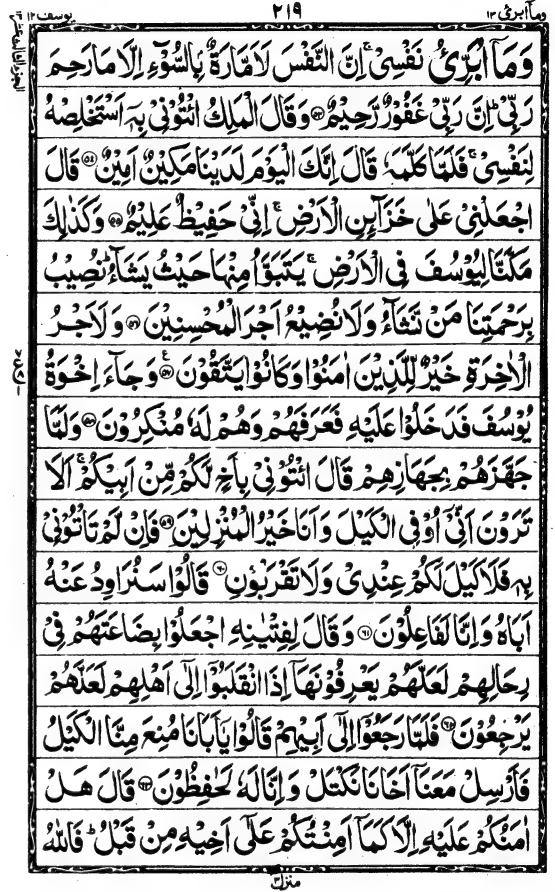 وماۤ ابرئ ١٣ ٢١٩ يوسف ١٢
وَمَاۤ اُبَرِّئُ نَفْسِىْ ۚ اِنَّ النَّفْسَ لَاَمَّارَةٌۢ بِالسُّوْٓءِ اِلَّا مَا رَحِمَ
رَبِّىْ ؕ اِنَّ رَبِّىْ غَفُوْرٌ رَّحِيْمٌ ﴿۵۳﴾ وَقَالَ الْمَلِكُ ائْتُوْنِىْ بِهٖۤ اَسْتَخْلِصْهُ
لِنَفْسِىْ ۚ فَلَمَّا كَلَّمَهٗ قَالَ اِنَّكَ الْيَوْمَ لَدَيْنَا مَكِيْنٌ اَمِيْنٌ ﴿۵۴﴾ قَالَ
اجْعَلْنِىْ عَلٰى خَزَآئِنِ الْاَرْضِ ۚ اِنِّىْ حَفِيْظٌ عَلِيْمٌ ﴿۵۵﴾ وَكَذٰلِكَ
مَكَّنَّا لِيُوْسُفَ فِى الْاَرْضِ ۚ يَتَبَوَّاُ مِنْهَا حَيْثُ يَشَآءُ ؕ نُصِيْبُ
بِرَحْمَتِنَا مَنْ نَّشَآءُ وَلَا نُضِيْعُ اَجْرَ الْمُحْسِنِيْنَ ﴿۵۶﴾ وَلَاَجْرُ
الْاٰخِرَةِ خَيْرٌ لِّلَّذِيْنَ اٰمَنُوْا وَكَانُوْا يَتَّقُوْنَ ﴿۵۷﴾ وَجَآءَ اِخْوَةُ
يُوْسُفَ فَدَخَلُوْا عَلَيْهِ فَعَرَفَهُمْ وَهُمْ لَهٗ مُنْكِرُوْنَ ﴿۵۸﴾ وَلَمَّا
جَهَّزَهُمْ بِجَهَازِهِمْ قَالَ ائْتُوْنِىْ بِاَخٍ لَّكُمْ مِّنْ اَبِيْكُمْ ۚ اَلَا
تَرَوْنَ اَنِّىْۤ اُوْفِى الْكَيْلَ وَاَنَا خَيْرُ الْمُنْزِلِيْنَ ﴿۵۹﴾ فَاِنْ لَّمْ تَاْتُوْنِىْ
بِهٖ فَلَا كَيْلَ لَكُمْ عِنْدِىْ وَلَا تَقْرَبُوْنِ ﴿۶۰﴾ قَالُوْا سَنُرَاوِدُ عَنْهُ
اَبَاهُ وَاِنَّا لَفَاعِلُوْنَ ﴿۶۱﴾ وَقَالَ لِفِتْيٰنِهِ اجْعَلُوْا بِضَاعَتَهُمْ فِىْ
رِحَالِهِمْ لَعَلَّهُمْ يَعْرِفُوْنَهَاۤ اِذَا انْقَلَبُوْۤا اِلٰٓى اَهْلِهِمْ لَعَلَّهُمْ
يَرْجِعُوْنَ ﴿۶۲﴾ فَلَمَّا رَجَعُوْۤا اِلٰٓى اَبِيْهِمْ قَالُوْا يٰۤاَبَانَا مُنِعَ مِنَّا الْكَيْلُ
فَاَرْسِلْ مَعَنَاۤ اَخَانَا نَكْتَلْ وَاِنَّا لَهٗ لَحٰفِظُوْنَ ﴿۶۳﴾ قَالَ هَلْ
اٰمَنُكُمْ عَلَيْهِ اِلَّا كَمَاۤ اَمِنْتُكُمْ عَلٰٓى اَخِيْهِ مِنْ قَبْلُ ؕ فَاللّٰهُ
منزل ٣